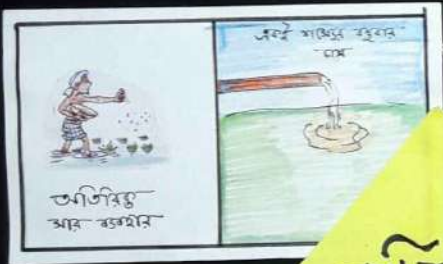 অতিরিক্ত
সার ব্যবহার
একই শস্যের বহুবার
চাষ